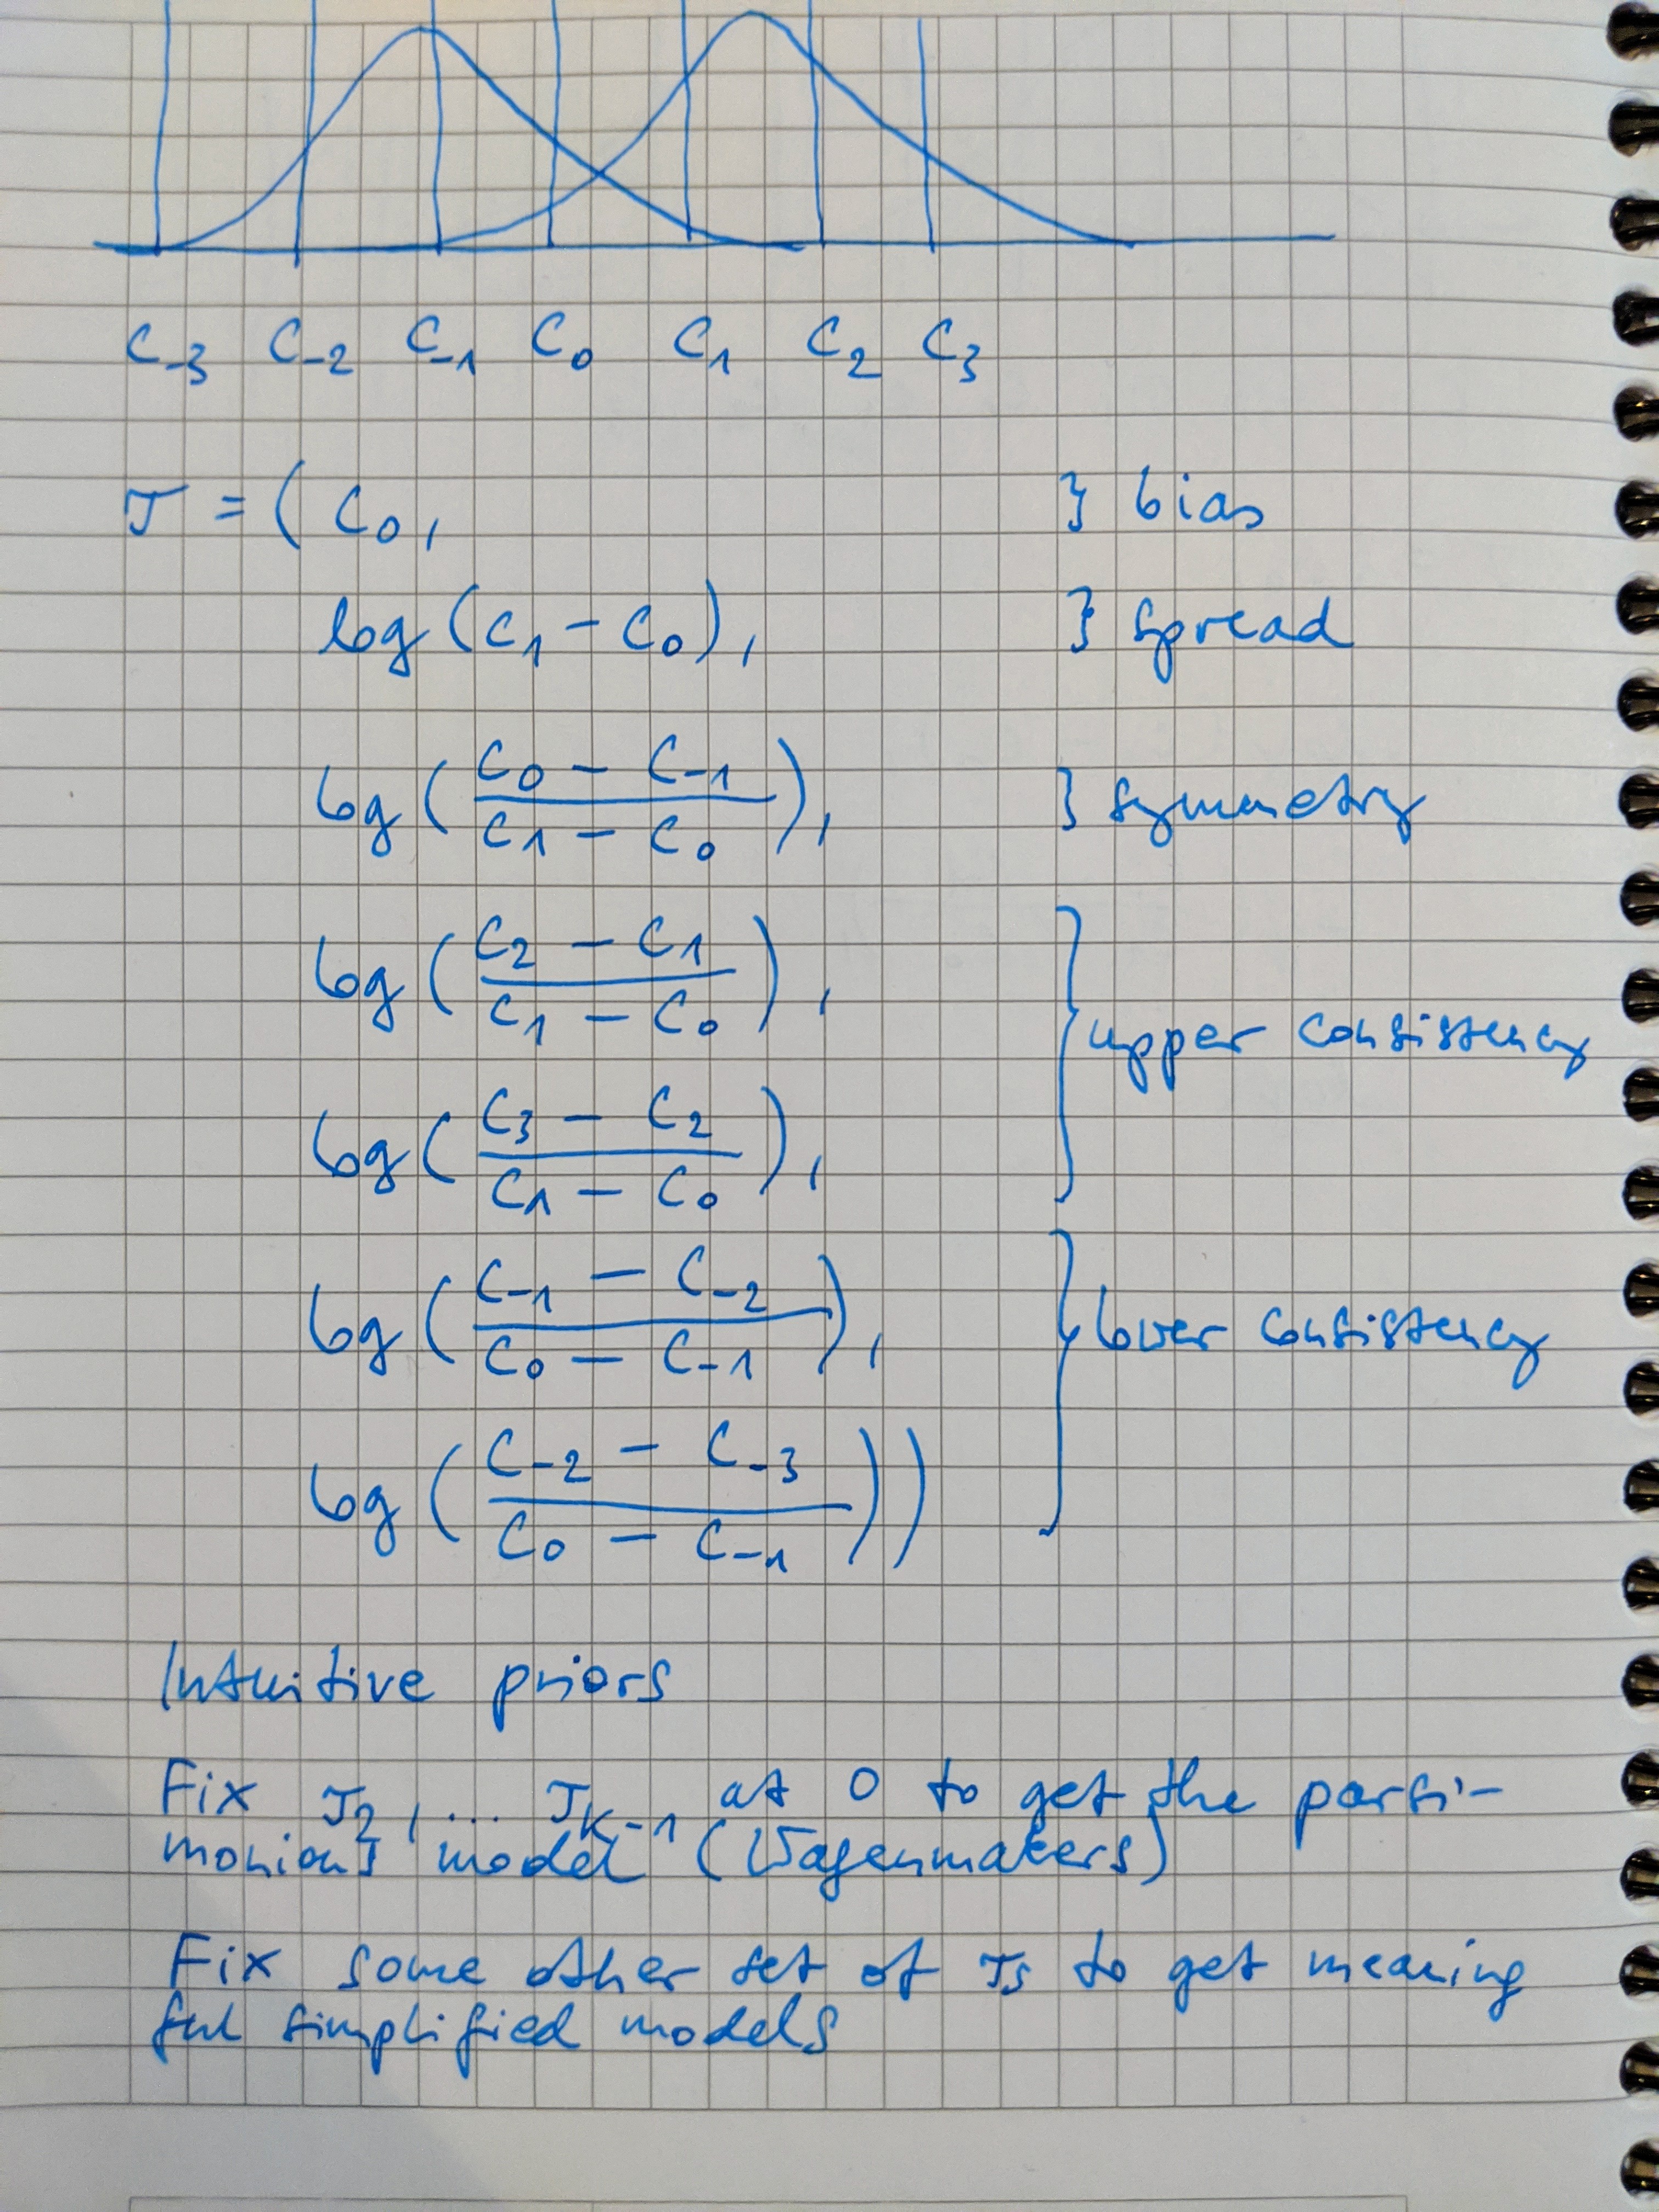 C₋₃ C₋₂ C₋₁ C₀ C₁ C₂ C₃
τ = ( C₀, } bias
log (C₁ − C₀), } spread
log ( (C₀ − C₋₁) / (C₁ − C₀) ), } symmetry
log ( (C₂ − C₁) / (C₁ − C₀) ),
} upper consistency
log ( (C₃ − C₂) / (C₁ − C₀) ),
log ( (C₋₁ − C₋₂) / (C₀ − C₋₁) ), } lower consistency
log ( (C₋₂ − C₋₃) / (C₀ − C₋₁) ))
Intuitive priors
Fix τ₂, ... τₖ₋₁ at 0 to get the parsi-
monious model (Wagenmakers)
Fix some other set of τs to get meaning
ful simplified models